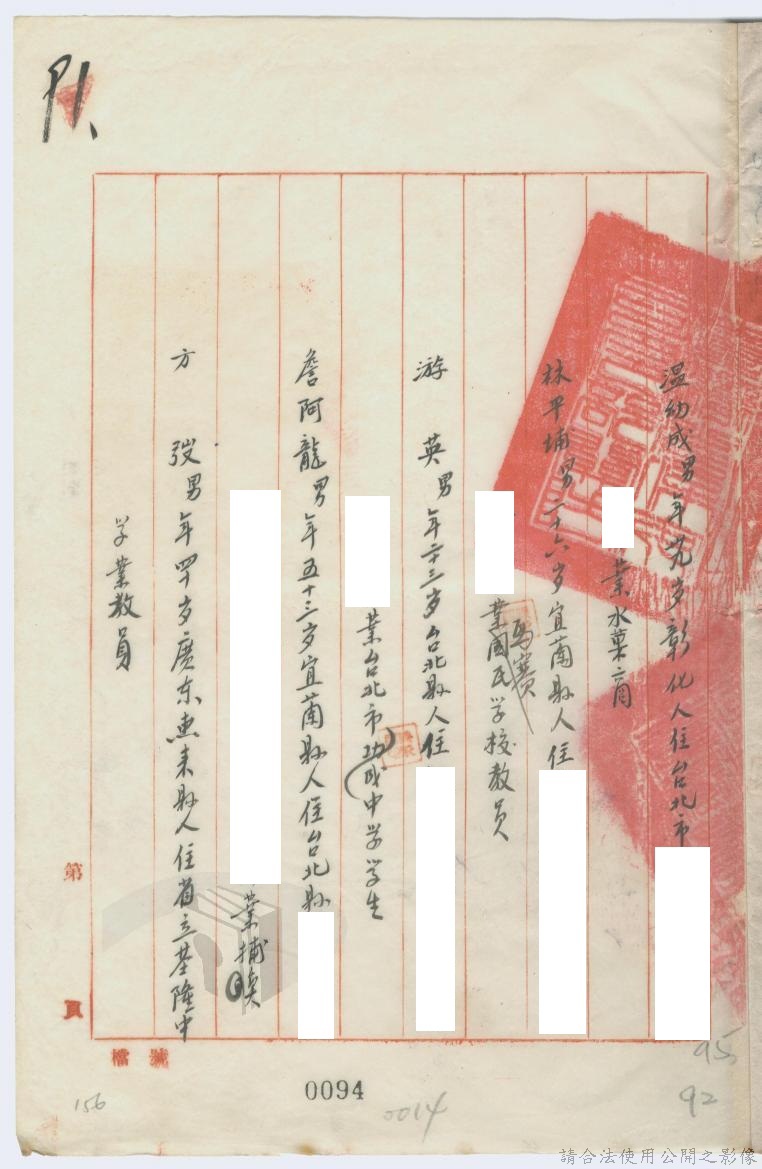 溫幼成男年廿九岁彰化人住台北市
業水菓商
林平埔男二十六岁宜蘭縣人住
馬賽
業國民学校教員
游英男年二十三岁台北縣人住
業台北市成功中学学生
詹阿龍男年五十三岁宜蘭縣人住台北縣
業捕魚
方弢男年四十岁廣东惠来縣人住省立基隆中
学業教員
第 頁
檔號
0094
0014
156
95
92
請合法使用公開之影像